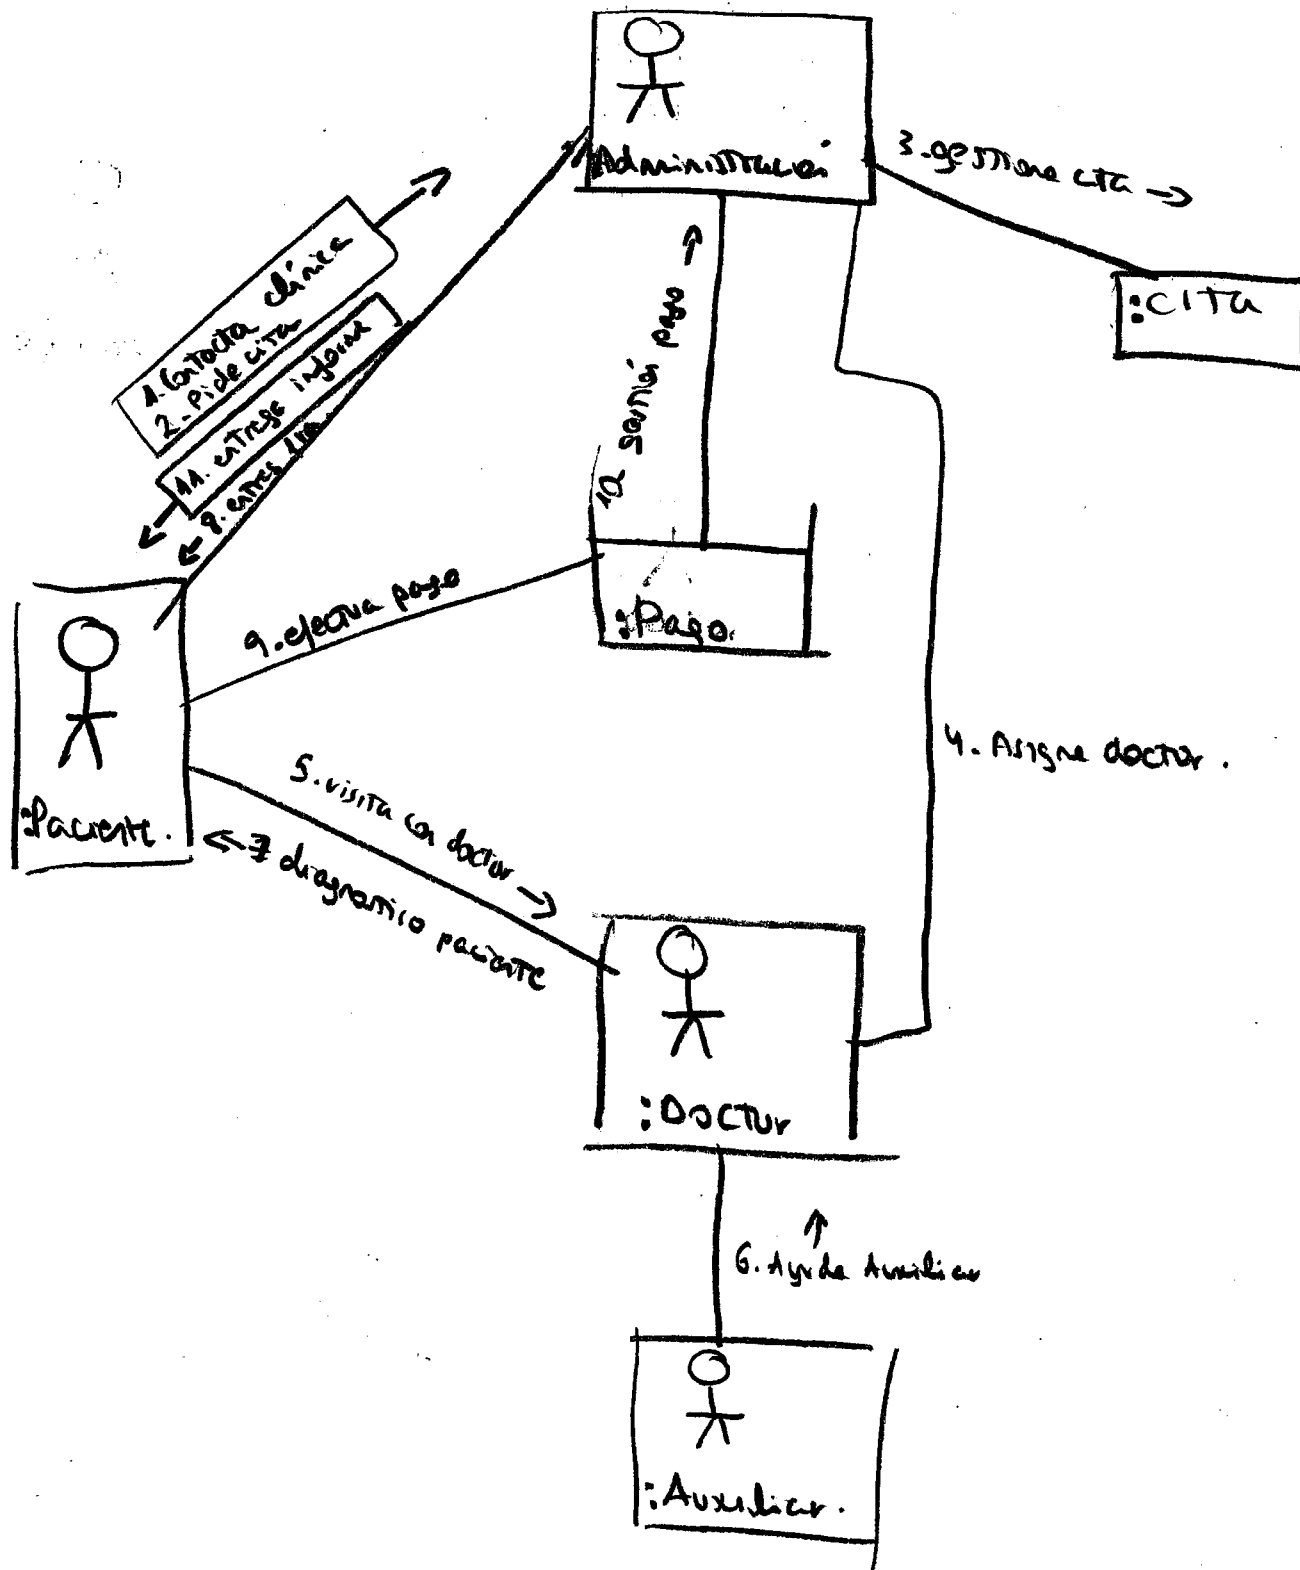 Administración
3. gestiona cita →
:CITA
1. Contacta clínica
2. Pide cita
11. entrega informe
8. entrega
10 gestión pago
9. efectua pago
:Pago.
:Paciente.
5. visita con doctor →
← 7 diagnostico paciente
4. Asigna doctor.
:Doctor
6. Ayuda Auxiliar
:Auxiliar.